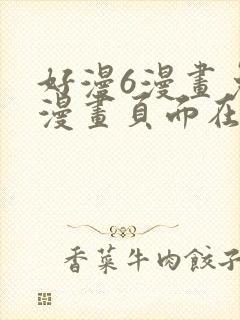 好漫6漫畫
漫畫頁而在
香菜牛肉餃子